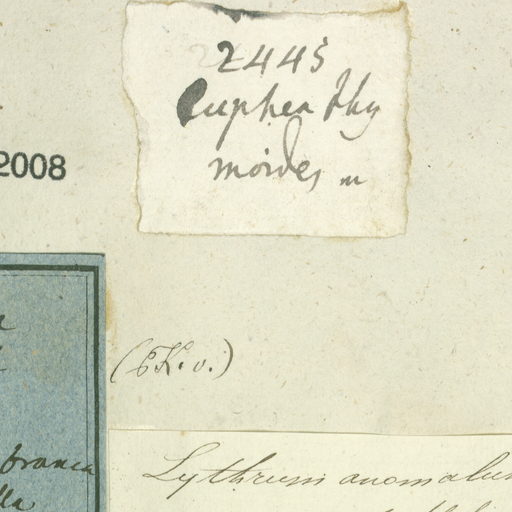 2445
Cuphea thy
moides m
2008
(6K.v.)
franca
lla
Lythrum anomalum